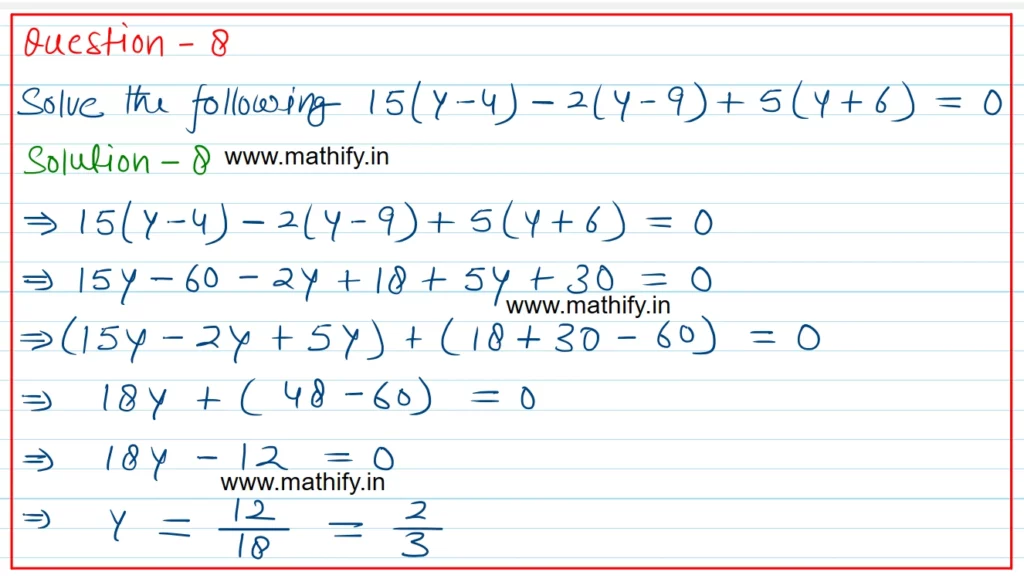 Question - 8
Solve the following 15(y-4) - 2(y-9) + 5(y+6) = 0
Solution - 8 www.mathify.in
⇒ 15(y-4) - 2(y-9) + 5(y+6) = 0
⇒ 15y - 60 - 2y + 18 + 5y + 30 = 0
www.mathify.in
⇒ (15y - 2y + 5y) + (18 + 30 - 60) = 0
⇒ 18y + (48 - 60) = 0
⇒ 18y - 12 = 0
www.mathify.in
⇒ y = 12/18 = 2/3